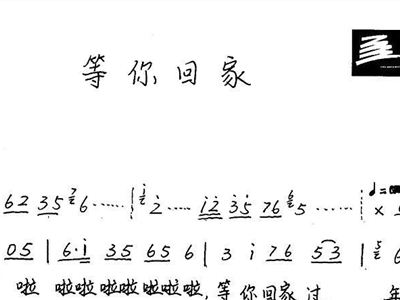 等你回家
62 35 6 ······ 2 ······ 12 35 76 5 ······
05 | 6·1 35 65 6 | 3 1 76 53 |
啦 啦啦 啦啦 啦啦 啦, 等 你 回家 过